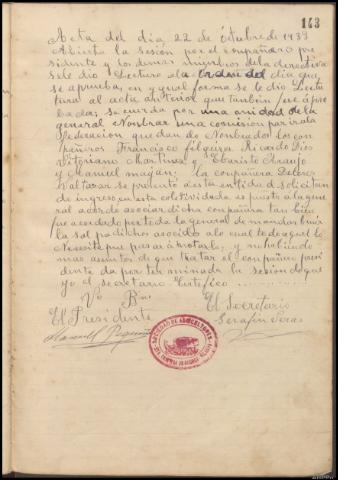 143
Acta del dia 22 de Octubre de 1933
Abierta la sesión por el compañero pre
sidente y los demas miembros de la directiva
se le dio Lectura a la Orden del dia que
se aprueba, en ygual forma se le dio Lectu
tura al acta anterior que tambien fue apro
bada; se acuerda por una nidad de la
general Nombrar una comision para ir a la
Federacion quedan de Nonbrados los con
pañeros Francisco filgueira Ricardo Dios
Vitoriano Martinez y Ebaristo Araujo
y Manuel magan; la compañera Dolores
Baltasar se presentó a esta entidad solicitan
do ingreso en esta coletividad se puesto a la gene
ral acordose asociar dicha compañera tan bien
fue acordado por toda la general de mandar benir
la sal pa dichos asociados a lo cual todo aquel que
Necesite que pase a anotarse, y no habiendo
mas asuntos de que tratar el conpañero presi
dente da por terminada la sesion de que
yo el secretario Certifico
Vº Bno
El Presidente
El Secretario
Manuel
Serafin
SOCIEDAD DE AGRICULTORES